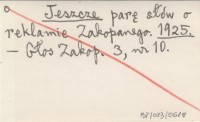 Jeszcze parę słów o
reklamie Zakopanego. 1925.
– Głos Zakop. 3, nr 10.